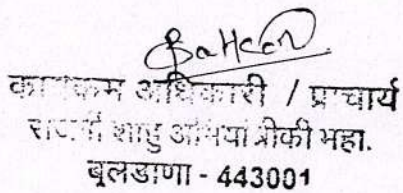 कार्यक्रम अधिकारी / प्राचार्य
राजर्षी शाहु अभियांत्रीकी महा.
बुलडाणा - 443001